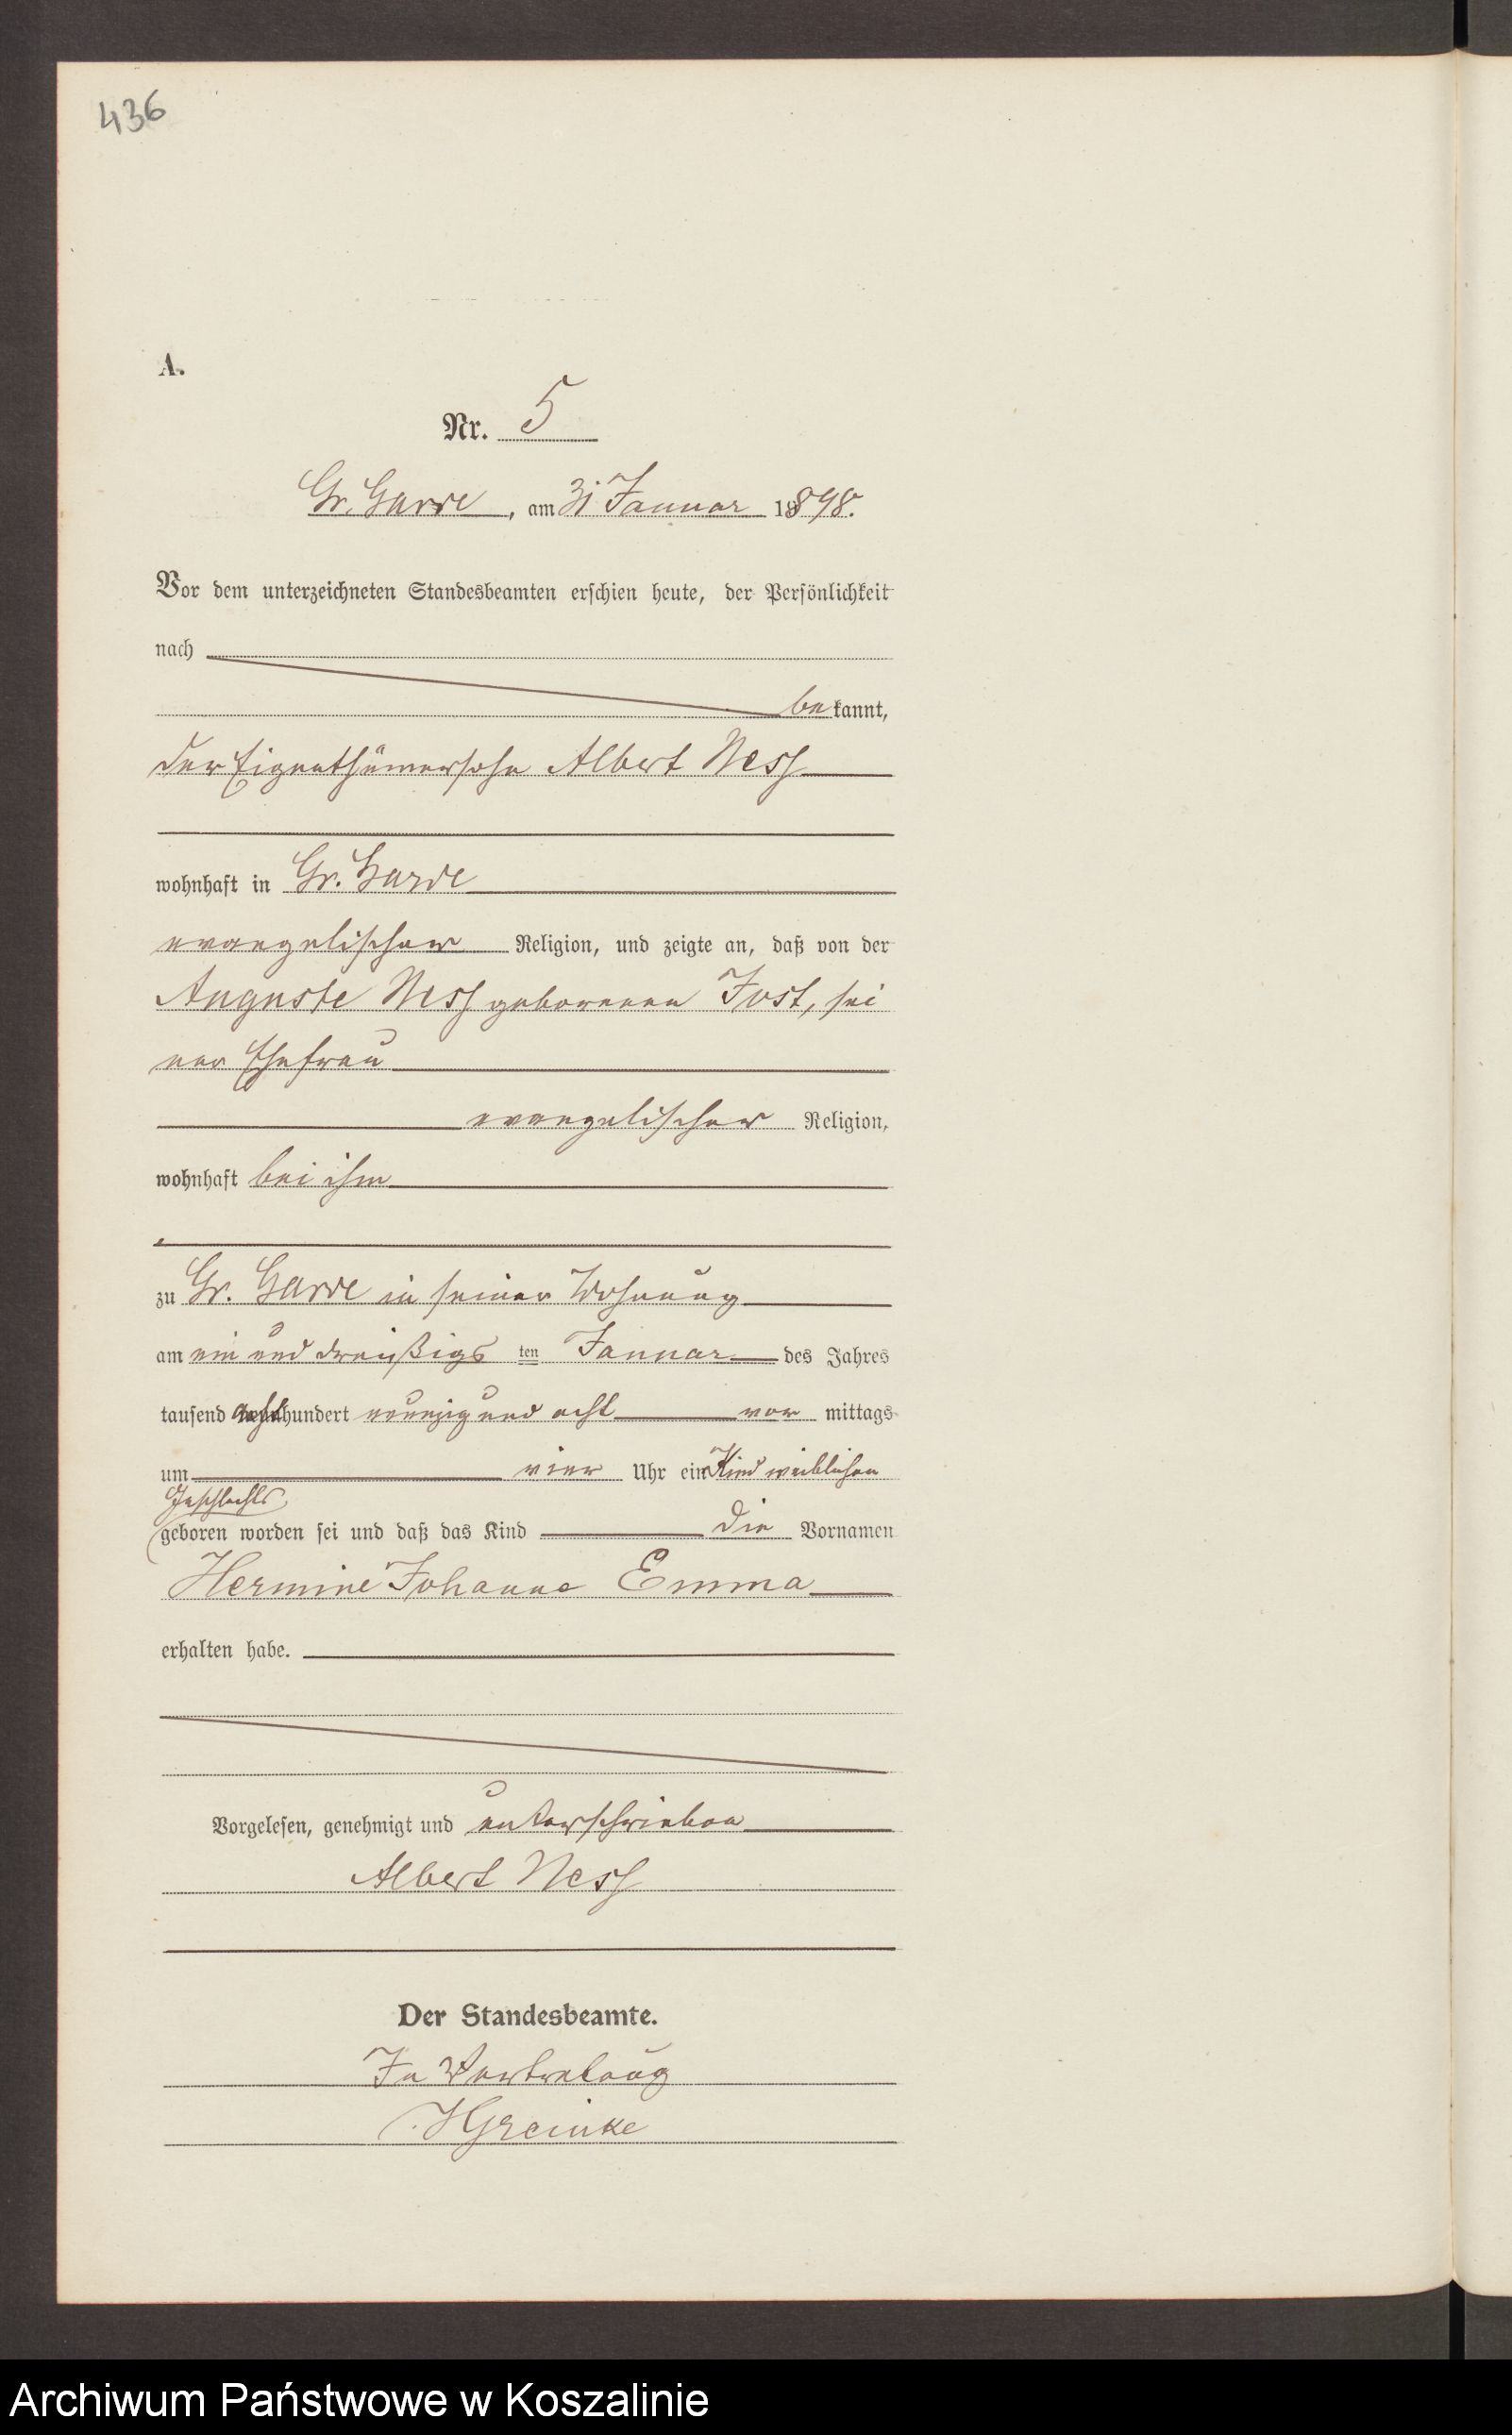 436
A.
Nr. 5
Gr. Garde, am 31 Januar 1898.
Vor dem unterzeichneten Standesbeamten erschien heute, der Persönlichkeit
nach
bekannt,
der Eigenthümersohn Albert Ness
wohnhaft in Gr. Garde
evangelischer Religion, und zeigte an, daß von der
Auguste Ness geborenen Jost, sei
ner Ehefrau
evangelischer Religion,
wohnhaft bei ihm
zu Gr. Garde in seiner Wohnung
am ein und dreißigs ten Januar des Jahres
tausend achthundert neunzig und acht vor mittags
um vier Uhr ein Kind weiblichen
Geschlechts
geboren worden sei und daß das Kind die Vornamen
Hermine Johanne Emma
erhalten habe.
Vorgelesen, genehmigt und unterschrieben
Albert Ness
Der Standesbeamte.
In Vertretung
HGreinke
Archiwum Państwowe w Koszalinie